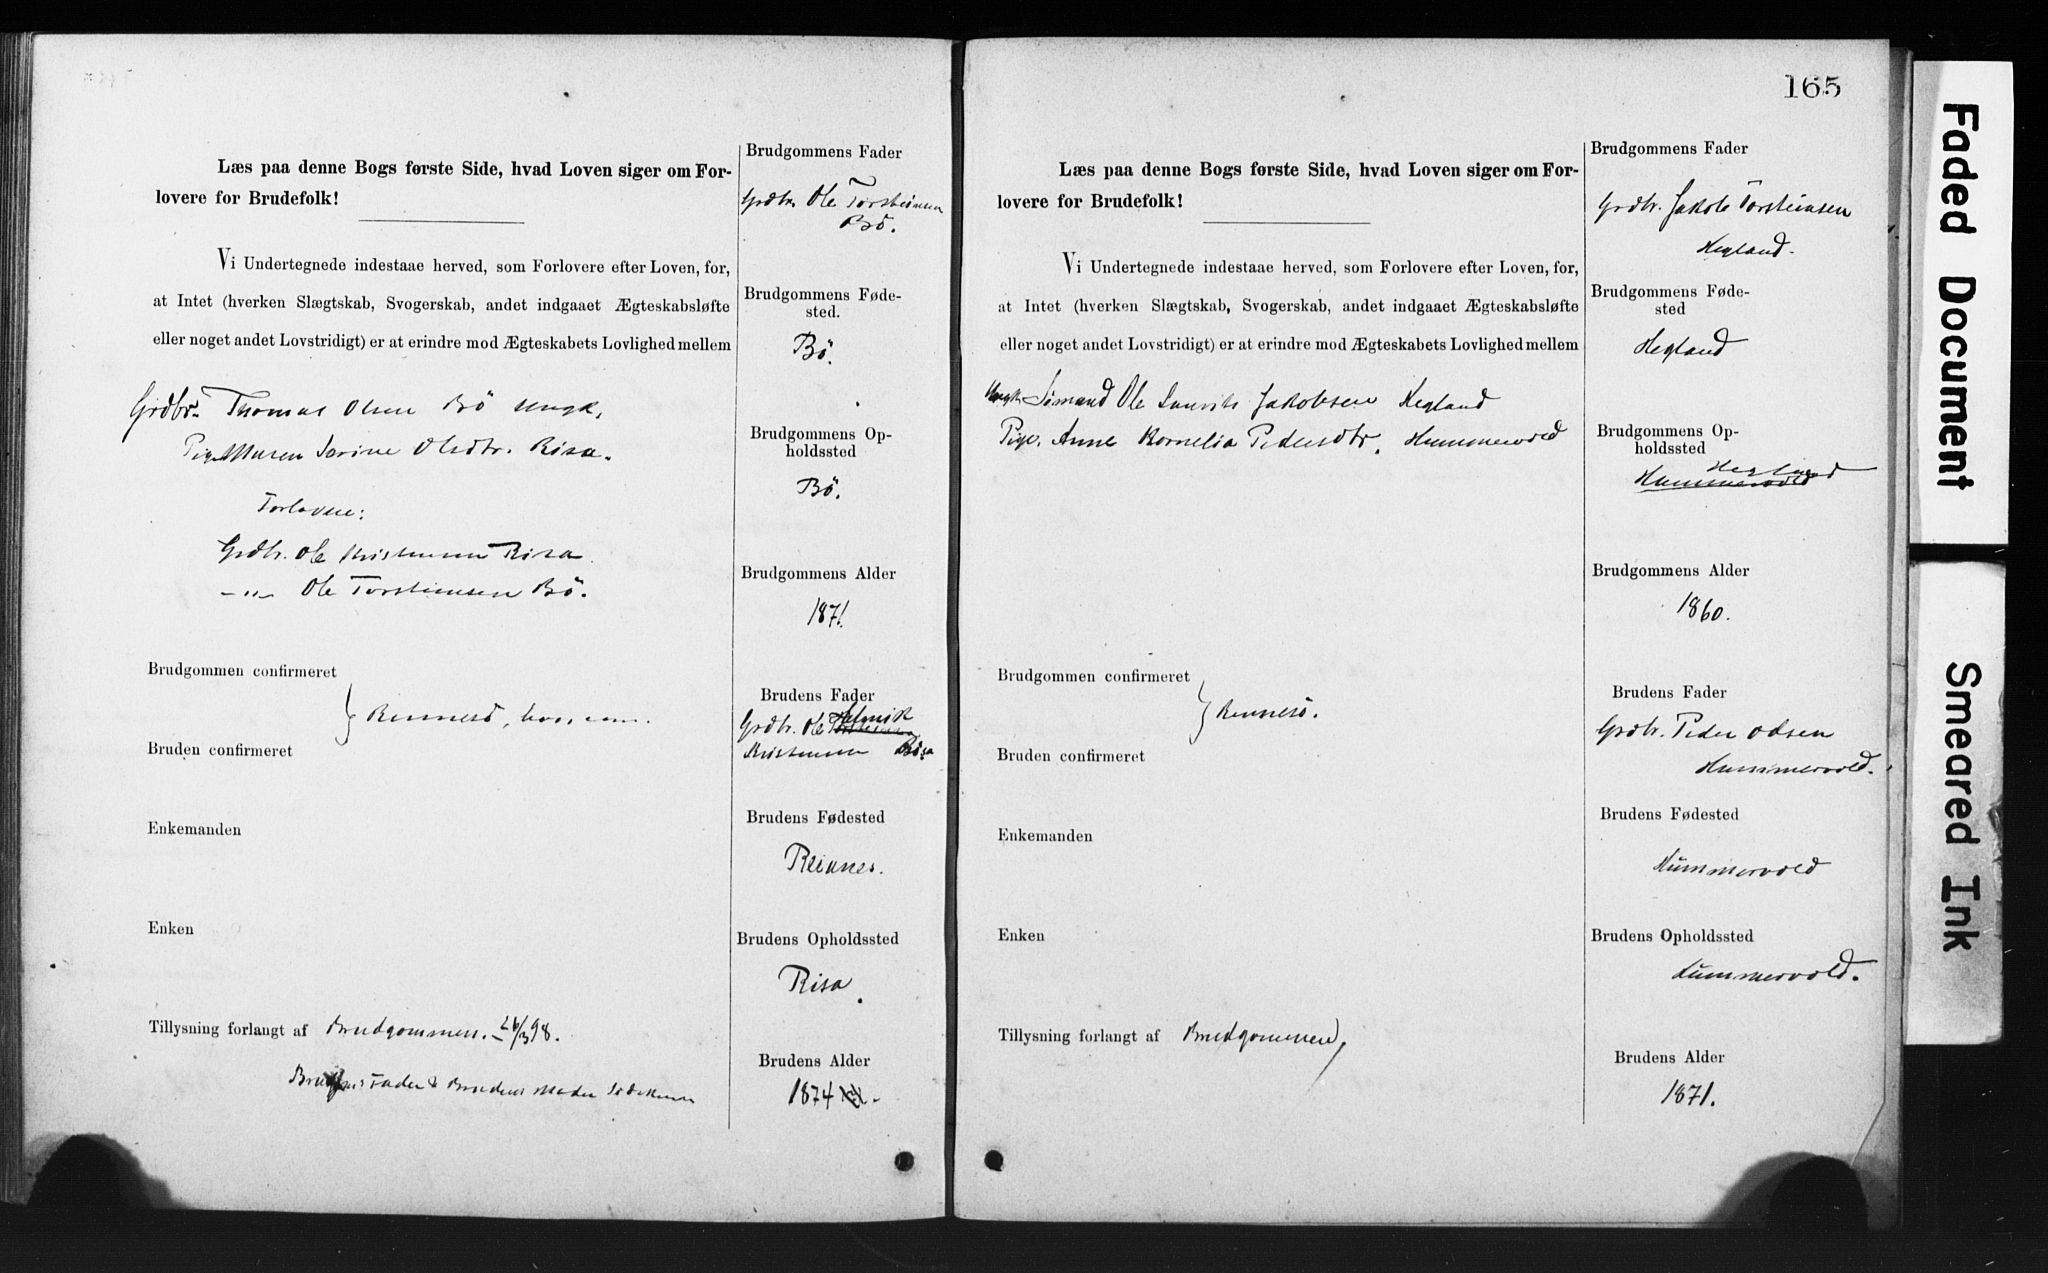 Læs paa denne Bogs første Side, hvad Loven siger om For-
lovere for Brudefolk!
Vi Undertegnede indestaae herved, som Forlovere efter Loven, for,
at Intet (hverken Slægtskab, Svogerskab, andet indgaaet Ægteskabsløfte
eller noget andet Lovstridigt) er at erindre mod Ægteskabets Lovlighed mellem
Grdbr. Thomas Olsen Bö Ungk.
Pige Maren Serine Olsdtr. Risa.
Forlovere:
Grdbr. Ole Kristensen Risa
-"- Ole Torsteinsen Bö.
Brudgommen confirmeret
Rennesö,
Bruden confirmeret
Enkemanden
Enken
Tillysning forlangt af Brudgommen. 26/3 98.
Fader & Brudens Moder Södskende
Brudgommens Fader
Grdbr. Ole Torsteinsen
Bö.
Brudgommens Føde-
sted.
Bö.
Brudgommens Op-
holdssted
Bö.
Brudgommens Alder
1871.
Brudens Fader
Grdbr. Ole
Kristensen Risa
Brudens Fødested
Reianes.
Brudens Opholdssted
Risa.
Brudens Alder
1874
165
Læs paa denne Bogs første Side, hvad Loven siger om For-
lovere for Brudefolk!
Vi Undertegnede indestaae herved, som Forlovere efter Loven, for,
at Intet (hverken Slægtskab, Svogerskab, andet indgaaet Ægteskabsløfte
eller noget andet Lovstridigt) er at erindre mod Ægteskabets Lovlighed mellem
Ungk. Sømand Ole Laurits Jakobsen Hegland
Pige. Anne Kornelia Pedersdtr. Hummervold
Brudgommen confirmeret
Rennesö.
Bruden confirmeret
Enkemanden
Enken
Tillysning forlangt af Brudgommen,
Brudgommens Fader
Grdbr. Jakob Torsteinsen
Hegland.
Brudgommens Føde-
sted
Hegland
Brudgommens Op-
holdssted
Hegland
Hummervold
Brudgommens Alder
1860.
Brudens Fader
Grdbr. Peder Olsen
Hummervold.
Brudens Fødested
Hummervold
Brudens Opholdssted
Hummervold.
Brudens Alder
1871.
Faded Document
Smeared Ink